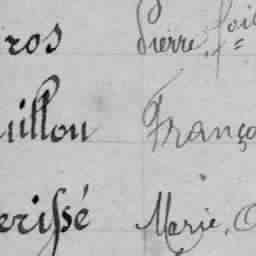 ros Pierre, foi
uillou Franço
erissé Marie, O